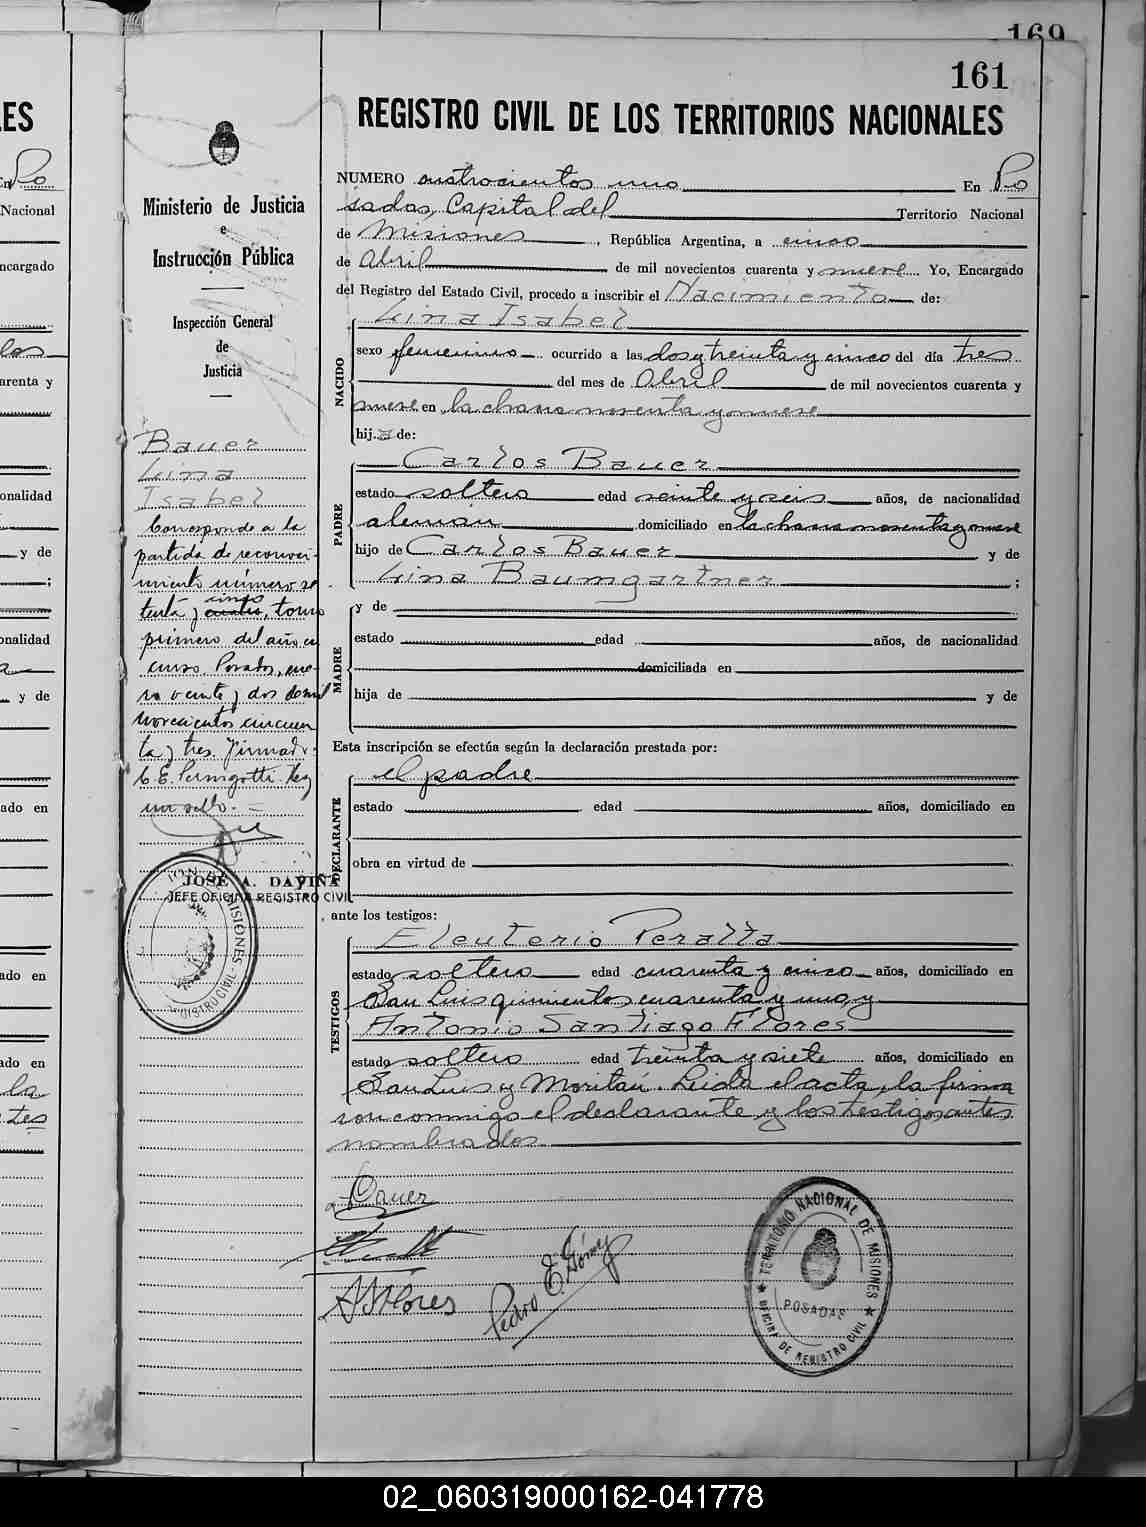 169
161
REGISTRO CIVIL DE LOS TERRITORIOS NACIONALES
NUMERO cuatrocientos uno En Po
sadas, Capital del Territorio Nacional
de Misiones, República Argentina, a cinco
de Abril de mil novecientos cuarenta y nueve. Yo, Encargado
del Registro del Estado Civil, procedo a inscribir el Nacimiento de:
NACIDO
Lina Isabel
sexo femenino ocurrido a las dos y treinta y cinco del día tres
del mes de Abril de mil novecientos cuarenta y
nueve en la chacra noventa y nueve
hija de:
PADRE
Carlos Bauer
estado soltero edad veinte y seis años, de nacionalidad
alemán domiciliado en la chacra noventa y nueve
hijo de Carlos Bauer y de
Lina Baumgartner;
MADRE
y de
estado edad años, de nacionalidad
domiciliada en
hija de y de
Esta inscripción se efectúa según la declaración prestada por:
DECLARANTE
el padre
estado edad años, domiciliado en
obra en virtud de
ante los testigos:
TESTIGOS
Eleuterio Peralta
estado soltero edad cuarenta y cinco años, domiciliado en
San Luis quinientos cuarenta y uno y
Antonio Santiago Flores
estado soltero edad treinta y siete años, domiciliado en
San Luis y Moritán. Leida el acta, la firma
ron conmigo el declarante y los testigos antes
nombrados.
Bauer
A S Flores
Pedro E. Gómez
TERRITORIO NACIONAL DE MISIONES
POSADAS
OFICINA DE REGISTRO CIVIL
Ministerio de Justicia
e
Instrucción Pública
Inspección General
de
Justicia
Bauer
Lina
Isabel
Corresponde a la
partida de reconoci-
miento número se
tenta y cinco, tomo
primero del año en
curso. Posadas, ene-
ro veinte y dos de mil
novecientos cincuen
ta y tres. Firmado:
C. E. Pernigotti. Hay
un sello.
JOSE A. DAVIÑA
JEFE OFICINA REGISTRO CIVIL
MISIONES
REGISTRO CIVIL
ES
En Po
Nacional
ncargado
arenta y
onalidad
y de
;
onalidad
y de
ado en
ado en
ado en
la
tes
02_060319000162-041778